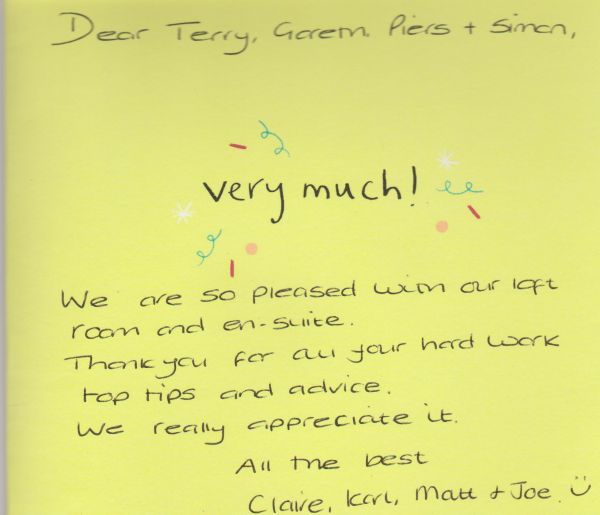 Dear Terry, Gareth, Piers + Simon,
very much!
We are so pleased with our loft
room and en-suite.
Thank you for all your hard work
top tips and advice.
We really appreciate it.
All the best
Claire, Karl, Matt + Joe. ☺